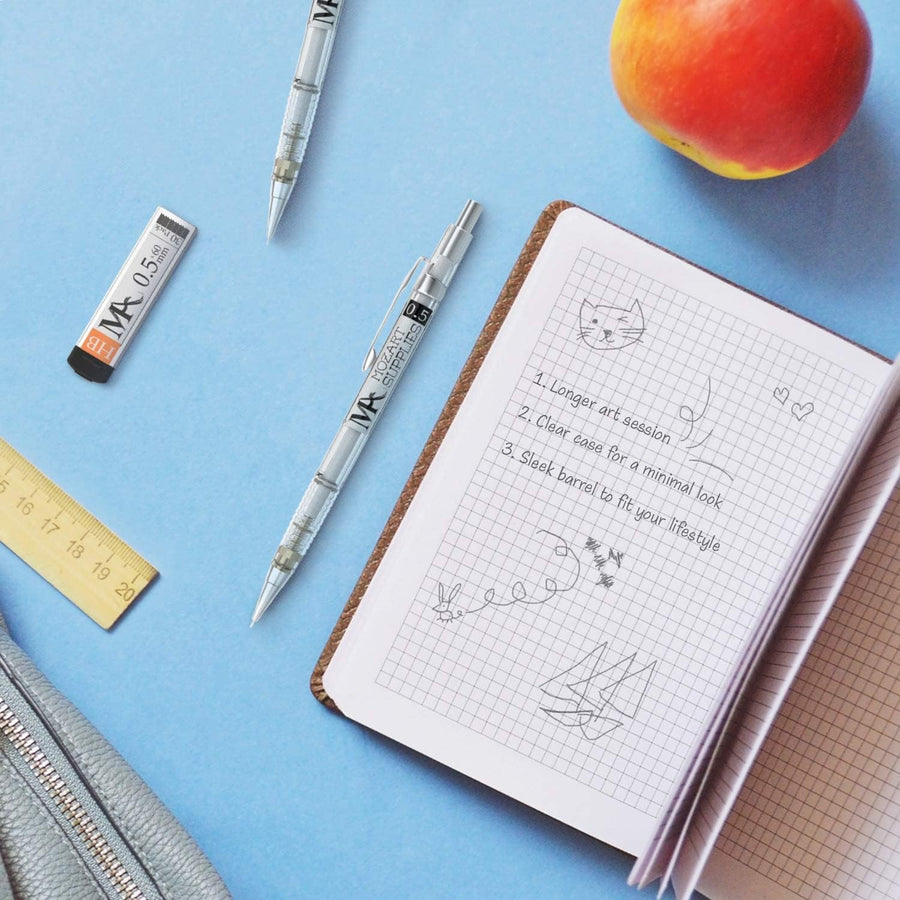 M
30 Pack
0.5×60
mm
MA
HB
0.5
MOZART
SUPPLIES
MA
1. Longer art session
2. Clear case for a minimal look
3. Sleek barrel to fit your lifestyle
5 16 17 18 19 20